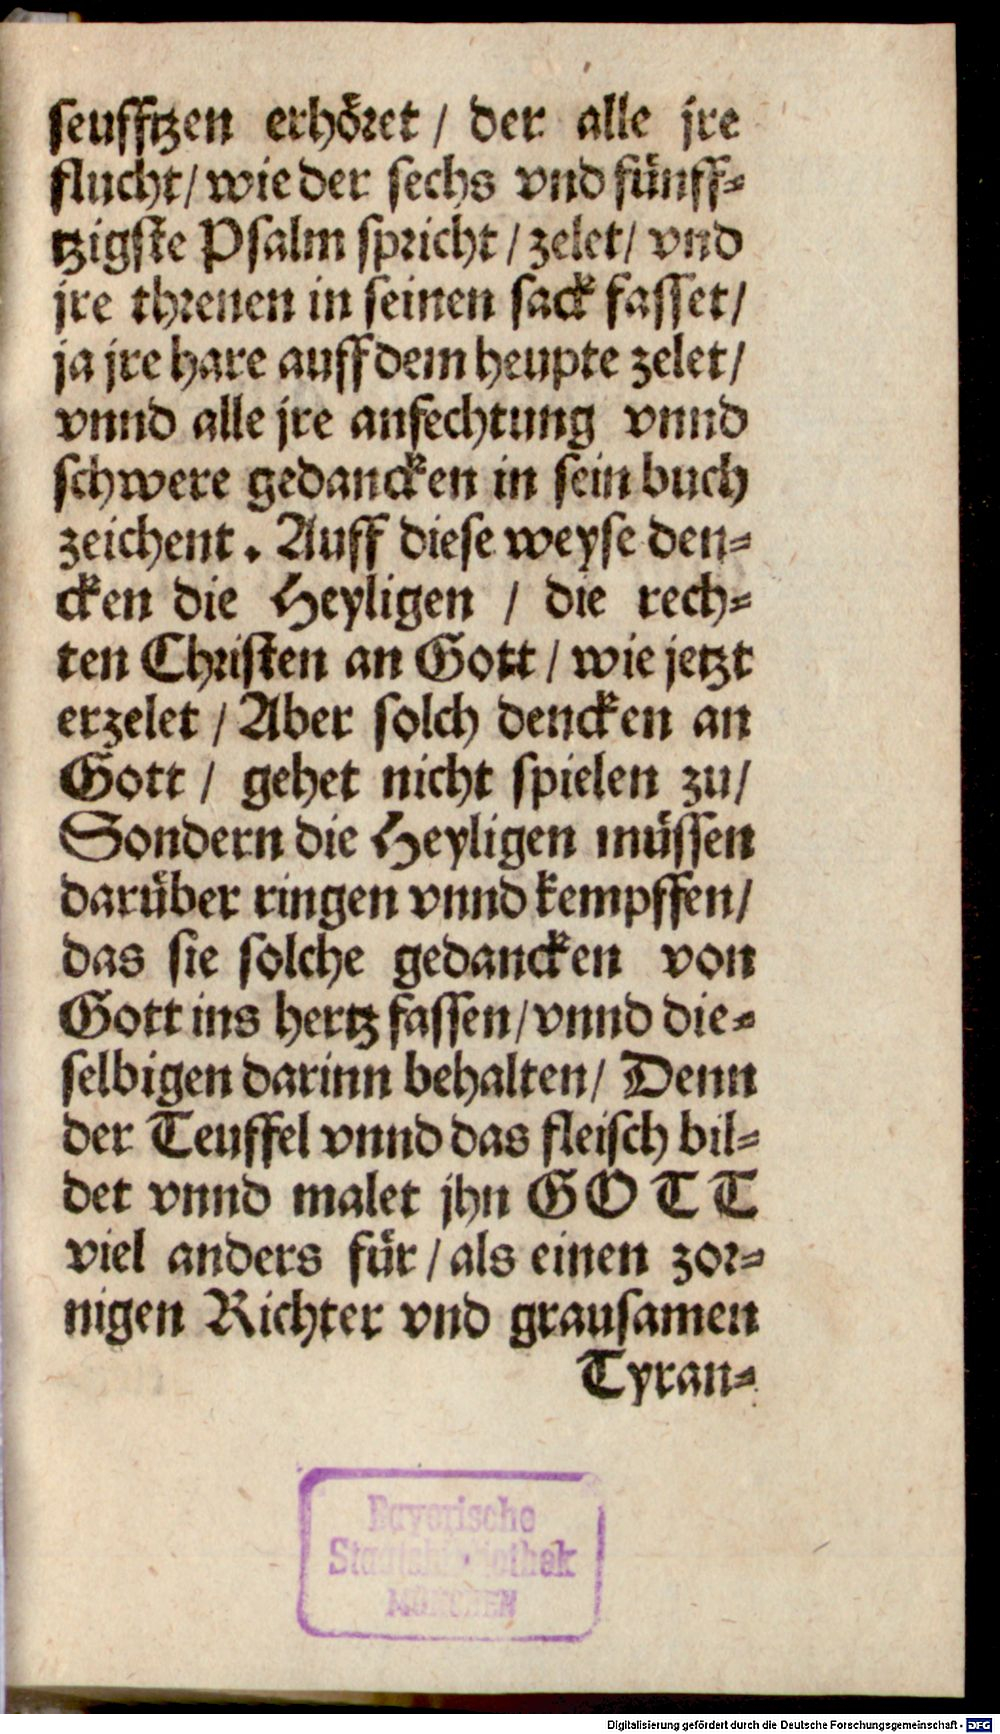 seufftzen erhöret / der alle jre
flucht / wie der sechs vnd fünff-
tzigste Psalm spricht / zelet / vnd
jre threnen in seinen sack fasset /
ja jre hare auff dem heupte zelet /
vnnd alle jre anfechtung vnnd
schwere gedancken in sein buch
zeichent. Auff diese weyse den-
cken die Heyligen / die rech-
ten Christen an Gott / wie jetzt
erzelet / Aber solch dencken an
Gott / gehet nicht spielen zu /
Sondern die Heyligen müssen
darüber ringen vnnd kempffen /
das sie solche gedancken von
Gott ins hertz fassen / vnnd die-
selbigen darinn behalten / Denn
der Teuffel vnnd das fleisch bil-
det vnnd malet jhn GOTT
viel anders für / als einen zor-
nigen Richter vnd grausamen
Tyran-
Bayerische
Staatsbibliothek
MÜNCHEN
Digitalisierung gefördert durch die Deutsche Forschungsgemeinschaft - DFG